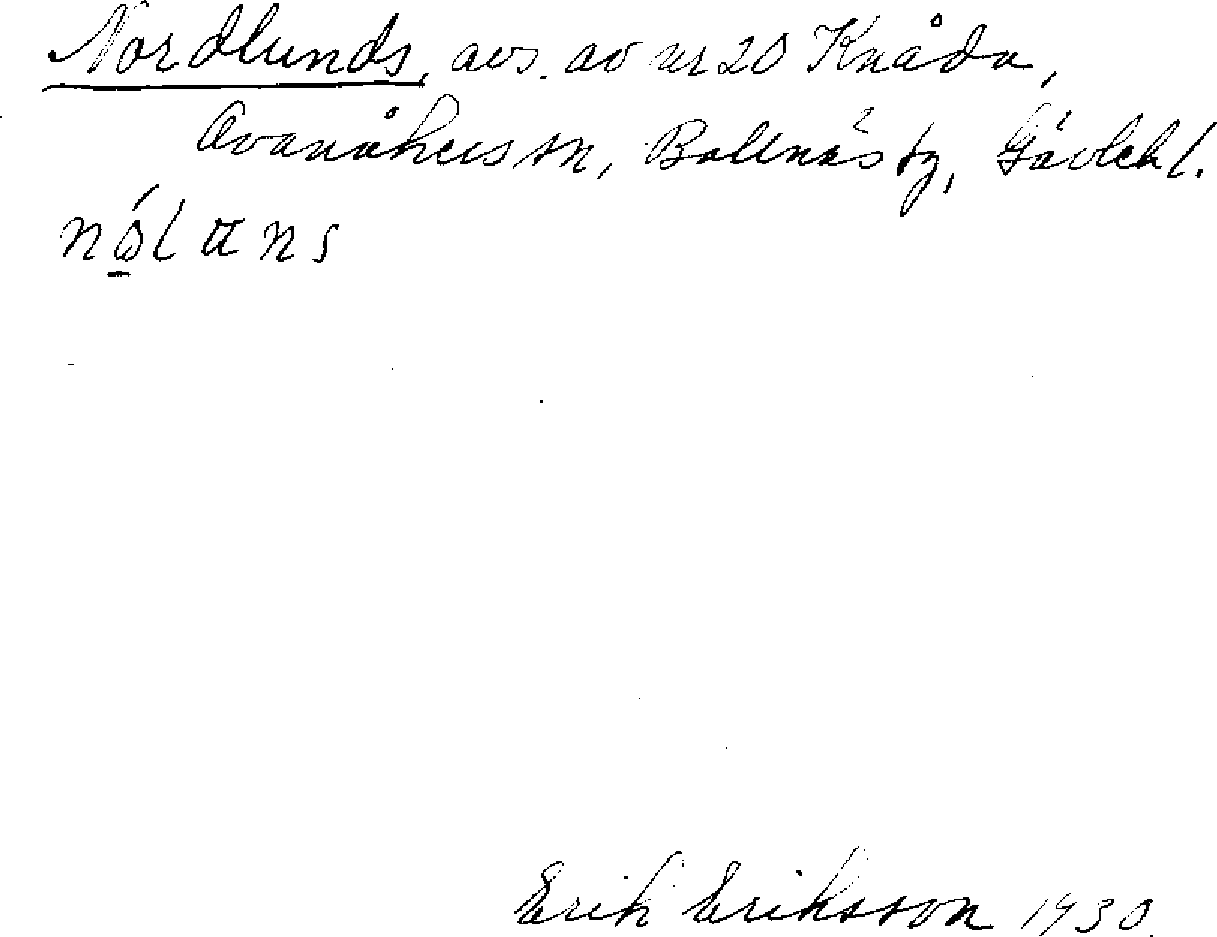 Nordlunds, avs. av nr 20 Knåda,
Ovanåkers sn, Bollnäs tg, Gävlebl.
Erik Eriksson 1930.